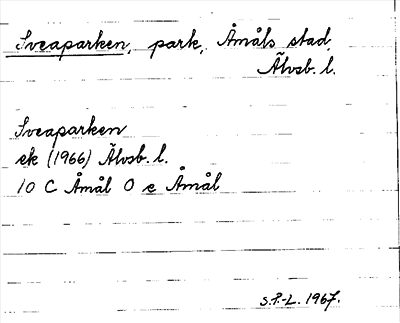 Sveaparken, park, Åmåls stad,
Älvsb. l.
Sveaparken
ek (1966) Älvsb. l.
10 C Åmål O e Åmål
S.P-L. 1967.